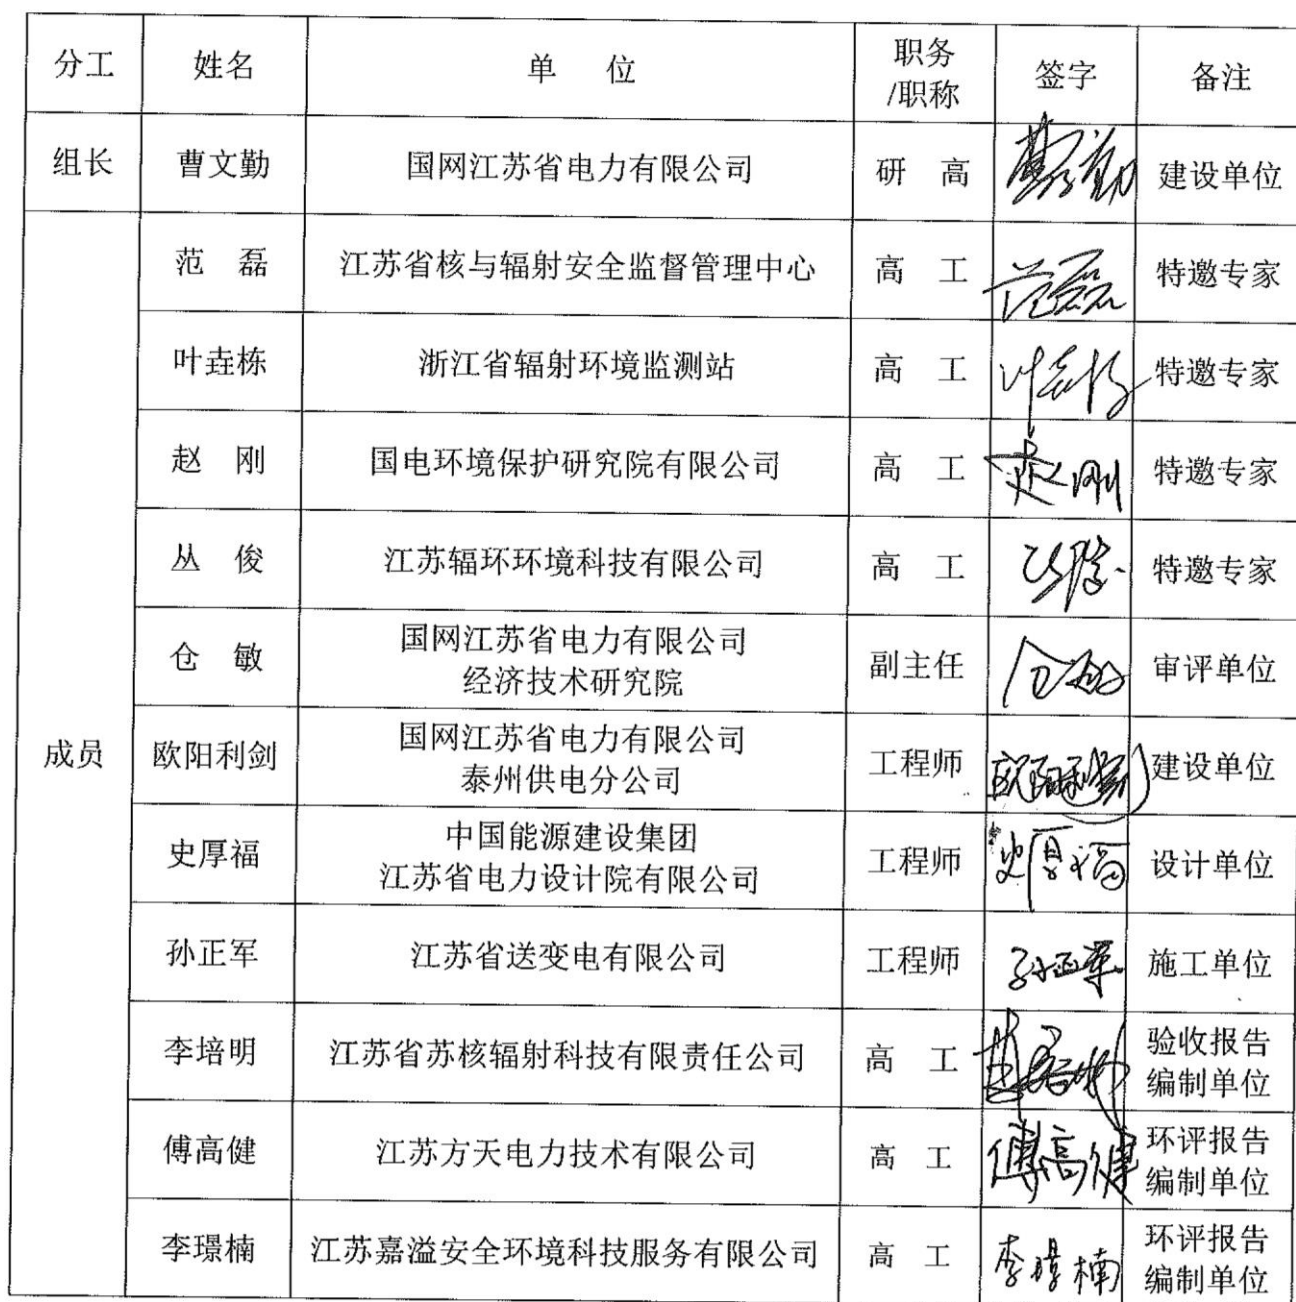 分工 姓名 单 位 职务/职称 签字 备注
组长 曹文勤 国网江苏省电力有限公司 研 高 曹文勤 建设单位
成员
范 磊 江苏省核与辐射安全监督管理中心 高 工 范磊 特邀专家
叶垚栋 浙江省辐射环境监测站 高 工 叶垚栋 特邀专家
赵 刚 国电环境保护研究院有限公司 高 工 赵刚 特邀专家
丛 俊 江苏辐环环境科技有限公司 高 工 丛俊 特邀专家
仓 敏 国网江苏省电力有限公司
经济技术研究院 副主任 仓敏 审评单位
欧阳利剑 国网江苏省电力有限公司
泰州供电分公司 工程师 欧阳利剑 建设单位
史厚福 中国能源建设集团
江苏省电力设计院有限公司 工程师 史厚福 设计单位
孙正军 江苏省送变电有限公司 工程师 孙正军 施工单位
李培明 江苏省苏核辐射科技有限责任公司 高 工 验收报告
编制单位
傅高健 江苏方天电力技术有限公司 高 工 傅高健 环评报告
编制单位
李璟楠 江苏嘉溢安全环境科技服务有限公司 高 工 李璟楠 环评报告
编制单位